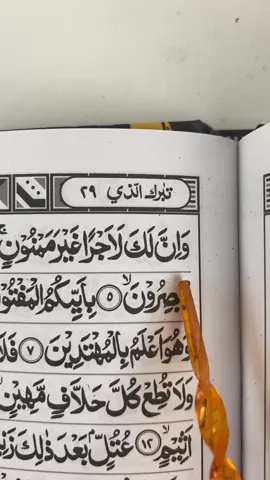 تبٰرك الّذي ٢٩
وَاِنَّ لَكَ لَاَجْرًا غَيْرَ مَمْنُوْنٍ
صِرُوْنَ ۙ ٥ بِاَىيِّكُمُ الْمَفْتُوْ
وَهُوَ اَعْلَمُ بِالْمُهْتَدِيْنَ ٧ فَلَا
وَلَا تُطِعْ كُلَّ حَلَّافٍ مَّهِيْنٍ
اَثِيْمٍ ۙ ١٢ عُتُلٍّۢ بَعْدَ ذٰلِكَ